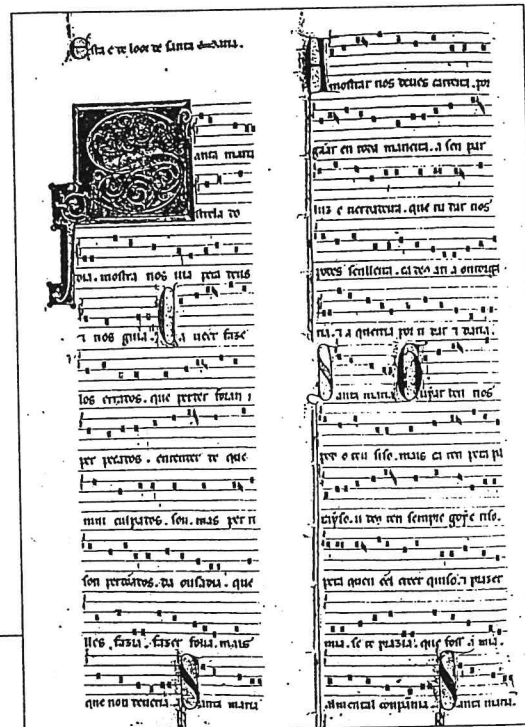 Esta e de loor de santa maria.
Santa maria
strela do
dia. mostra nos uia pera deus
⁊ nos guia. Ca ueer faze
los errados. que perder foran
per pecados. entender de que
mui culpados. son. mas per ti
son perdoados. da ousadia. que
lles fazia. fazer folia. mais
que non deueria. Santa maria
Amostrar nos deues carreira. por
gãar en toda maneira. a sen par
luz e uerdadeira. que tu dar nos
podes senlleira. ca de a ti a outorga
ria. ⁊ a querria por ti dar ⁊ daria.
Santa maria Guyar ben nos
pod o teu siso. mais ca ren pera pa
rayso. u deꝰ ten sempre goy e riso.
pera quen eel creer quiso. ⁊ prazer
mia. se te prazia. que foss a mia.
alma en tal conpania. Santa maria